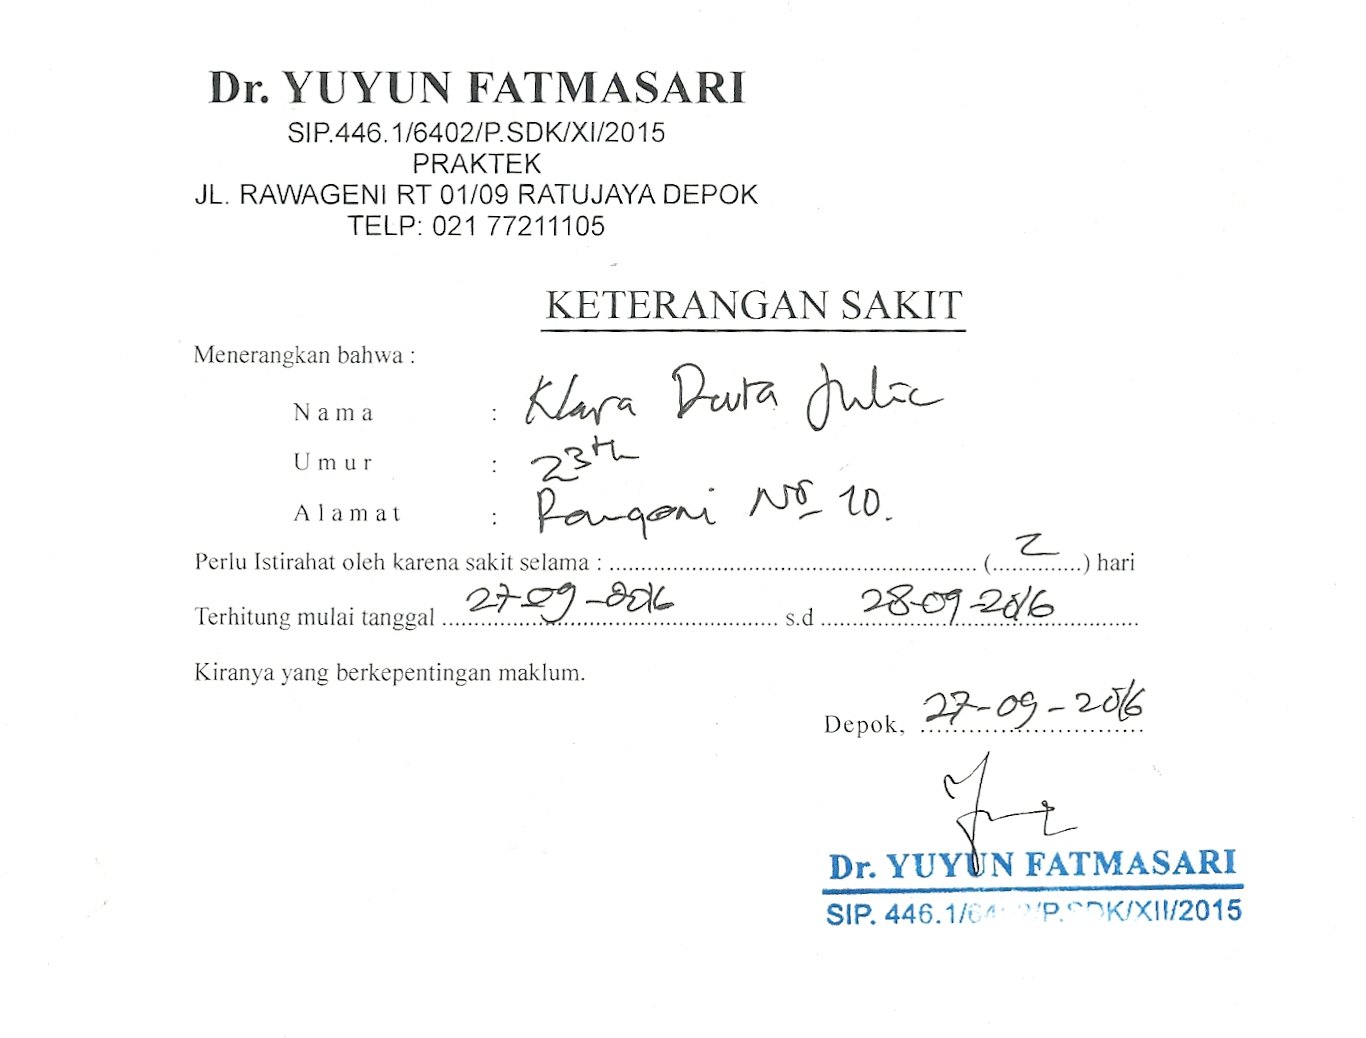 Dr. YUYUN FATMASARI
SIP.446.1/6402/P.SDK/XI/2015
PRAKTEK
JL. RAWAGENI RT 01/09 RATUJAYA DEPOK
TELP: 021 77211105
KETERANGAN SAKIT
Menerangkan bahwa :
Nama : Klara Duta Julic
Umur : 23th
Alamat : No 10.
Perlu Istirahat oleh karena sakit selama : ........................ (2) hari
Terhitung mulai tanggal 27-09-2016 s.d 28-09-2016
Kiranya yang berkepentingan maklum.
Depok, 27-09-2016
Dr. YUYUN FATMASARI
SIP. 446.1/64 /P.SDK/XII/2015